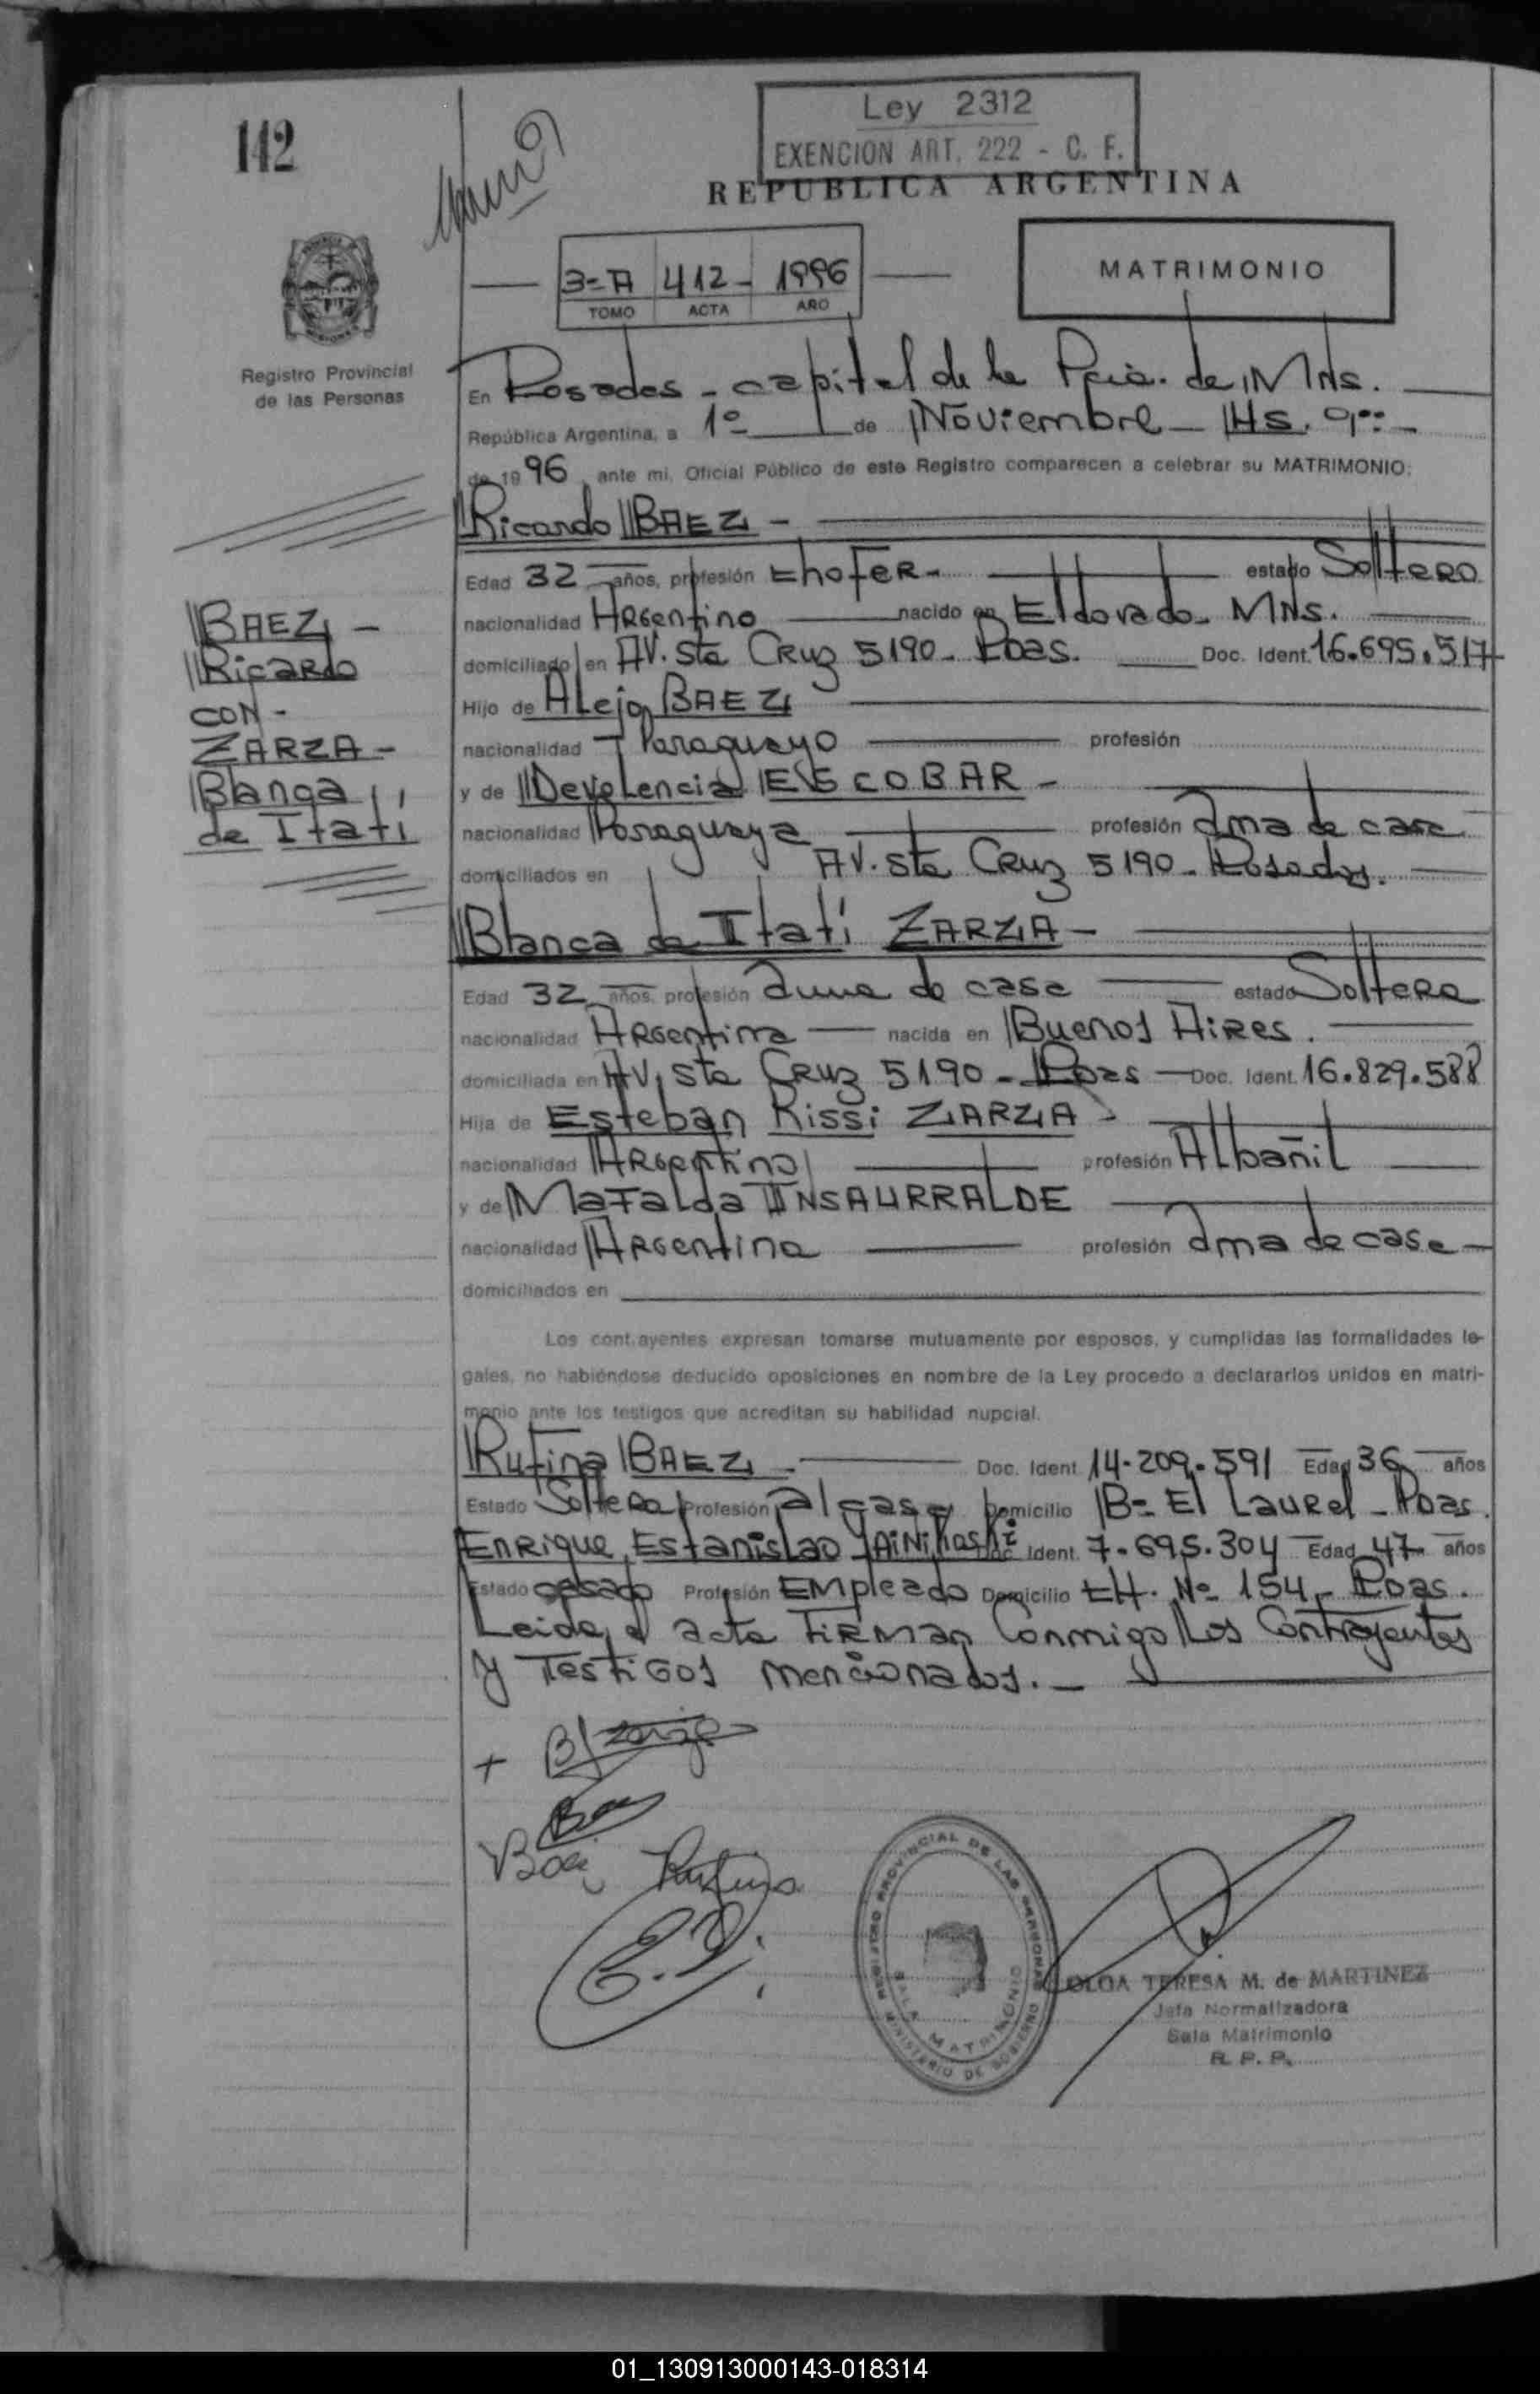 142
Ley 2312
EXENCION ART. 222 - C. F.
REPUBLICA ARGENTINA
3=A 412- 1996
TOMO ACTA AÑO
MATRIMONIO
Registro Provincial
de las Personas
En Posadas - capital de la Pcia. de Mns.
República Argentina, a 1º de Noviembre - Hs. 9:-
de 1996, ante mi, Oficial Público de este Registro comparecen a celebrar su MATRIMONIO:
Ricardo BAEZ -
Edad 32 años, profesión chofer - estado Soltero
nacionalidad Argentino nacido en Eldorado - Mns.
domiciliado en AV. Sta Cruz 5190 - Pdas. Doc. Ident. 16.695.517
Hijo de Alejo BAEZ
nacionalidad Paraguayo profesión
y de ESCOBAR -
nacionalidad Paraguaya profesión ama de casa
domiciliados en AV. Sta Cruz 5190 - Posadas.
BAEZ -
Ricardo
CON -
ZARZA -
Blanca
de Itatí
Blanca de Itatí ZARZA -
Edad 32 años, profesión ama de casa estado Soltera
nacionalidad Argentina nacida en Buenos Aires.
domiciliada en AV. Sta Cruz 5190 - Pdas - Doc. Ident. 16.829.588
Hija de Esteban Rissi ZARZA -
nacionalidad Argentino profesión Albañil
y de Mafalda INSAURRALDE
nacionalidad Argentina profesión ama de casa -
domiciliados en
Los contrayentes expresan tomarse mutuamente por esposos, y cumplidas las formalidades le-
gales, no habiéndose deducido oposiciones en nombre de la Ley procedo a declararlos unidos en matri-
monio ante los testigos que acreditan su habilidad nupcial.
Rufina BAEZ - Doc. Ident. 14.209.591 Edad 36 años
Estado Soltera Profesión al casa Domicilio Bº El Laurel - Pdas.
Enrique Estanislao Doc. Ident. 7.695.304 Edad 47 años
Estado casado Profesión Empleado Domicilio CH. Nº 154 - Pdas.
Leida el acta Firman Conmigo Los Contrayentes
y Testigos mencionados. -
+ B Zarza
Baez Rufina
REGISTRO PROVINCIAL DE LAS PERSONAS
SALA MATRIMONIO
MINISTERIO DE GOBIERNO
OLGA TERESA M. de MARTINEZ
Jefa Normalizadora
Sala Matrimonio
R. P. P.
01_130913000143-018314